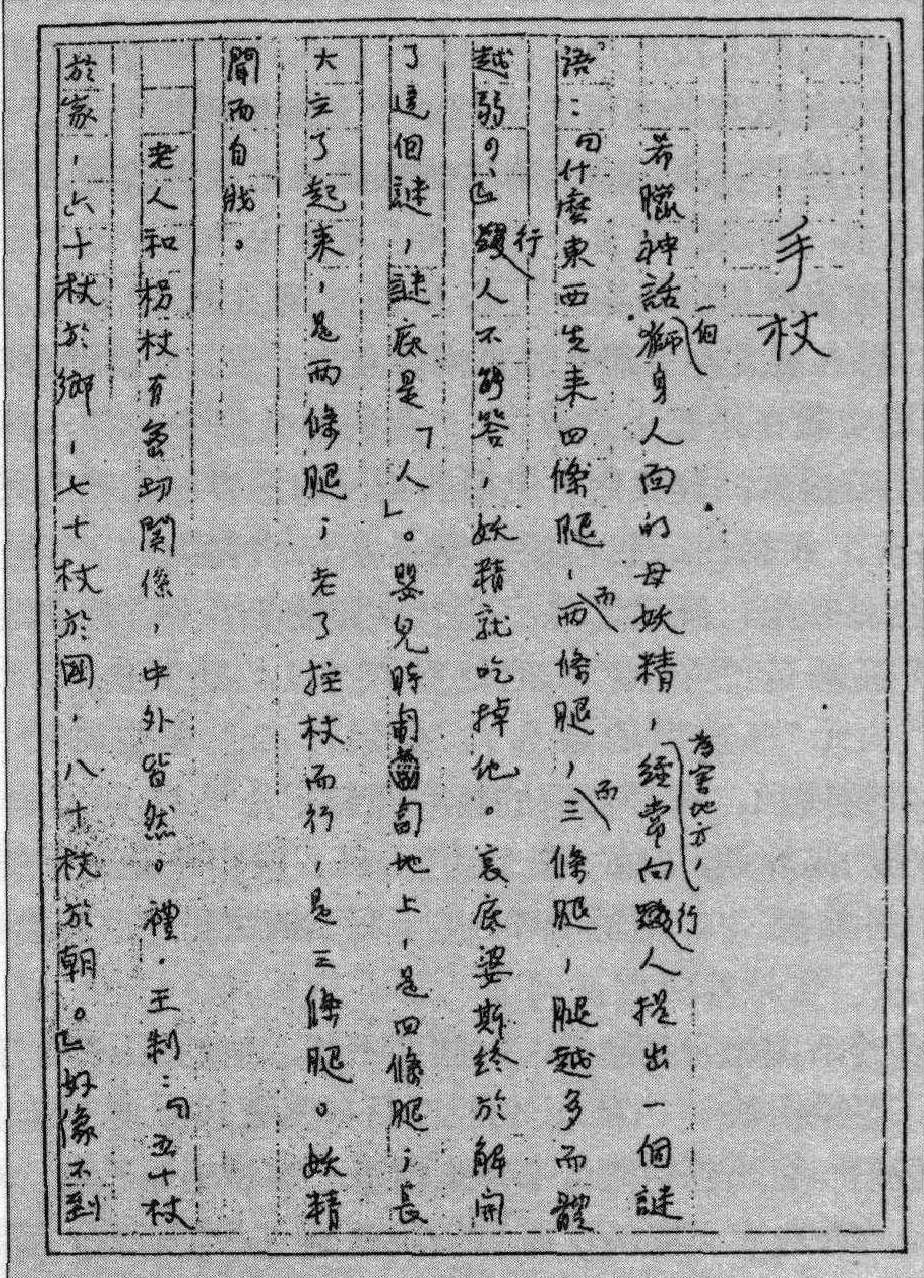 手杖
希臘神話一個獅身人面的母妖精，為害地方，經常向行人提出一個謎
語：「什麼東西先來四條腿，而兩條腿，而三條腿，腿越多而體
越弱？」行人不能答，妖精就吃掉他。哀底婆斯終於解開
了這個謎，謎底是「人」。嬰兒時匍匐地上，是四條腿；長
大立了起來，是兩條腿；老了拄杖而行，是三條腿。妖精
聞而自戕。
老人和柺杖有密切關係，中外皆然。禮．王制：「五十杖
於家，六十杖於鄉，七十杖於國，八十杖於朝。」好像不到